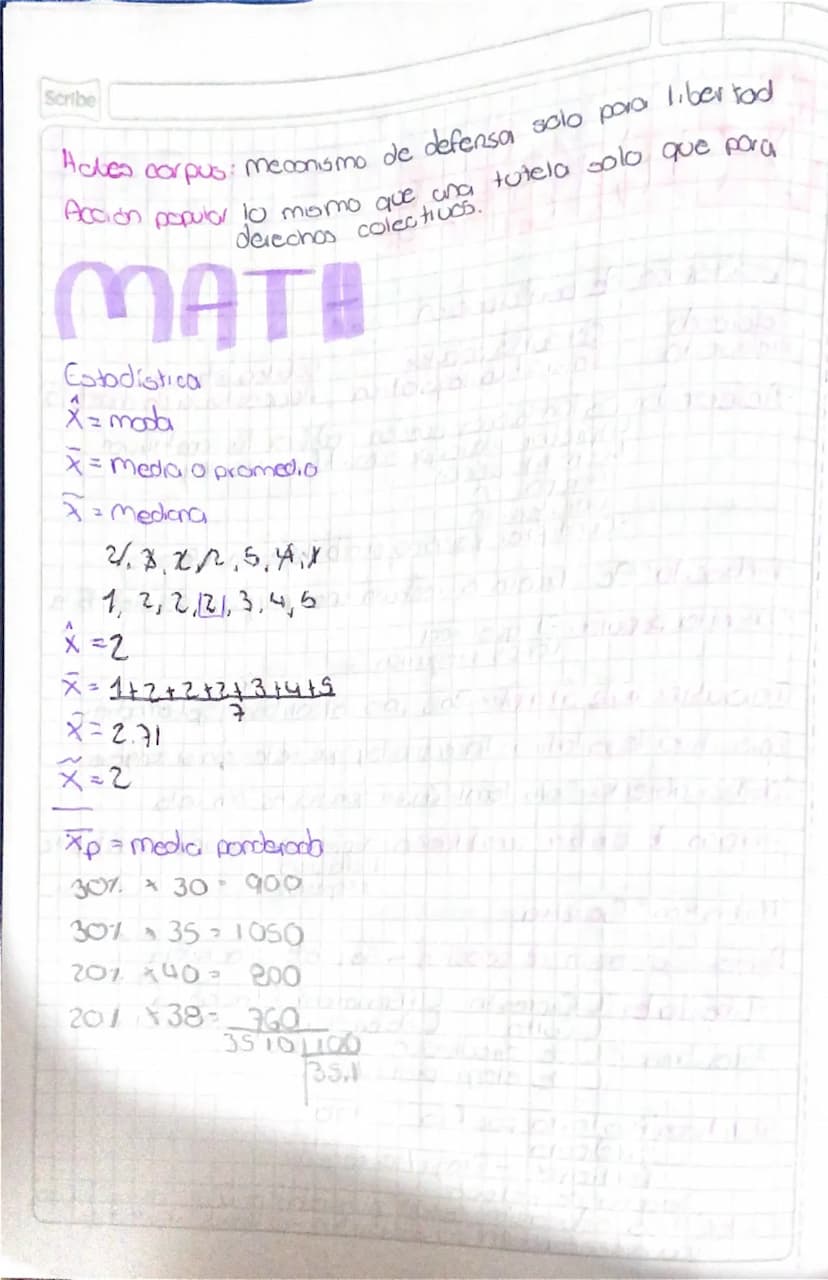 Scribe
Actes corpus: mecanismo de defensa solo para libertad
Acción popular lo mismo que una tutela solo que para
derechos colectivos.
MATH
Estadística
x̂ = moda
x̄ = media o promedio
x̃ = Mediana
2, 3, 2, 2, 5, 4, 1
1, 2, 2, 2, 3, 4, 5
x̂ = 2
x̄ = 1+2+2+2+3+4+5
7
x̄ = 2.71
x̃ = 2
x̄p = media ponderada
30% × 30 = 900
30% × 35 = 1050
20% × 40 = 800
20% × 38 = 760
3510 100
35.1